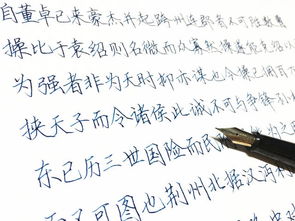 自董卓已来豪杰并起跨州连郡者不可胜数
操比于袁绍则名微而众寡然操遂能克绍以
为强者非为天时抑亦谋也今操已拥百万
挟天子而令诸侯此诚不可与争锋孙
东已历三世国险而民
可图也荆州北据汉沔利